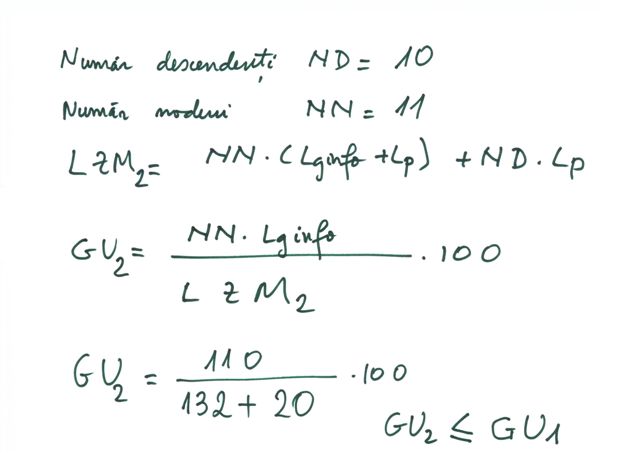 Număr descendenți ND = 10
Număr noduri NN = 11
LZM₂ = NN · (Lginfo + Lp) + ND · Lp
GU₂ = NN · Lginfo / LZM₂ · 100
GU₂ = 110 / 132 + 20 · 100
GU₂ ≤ GU1